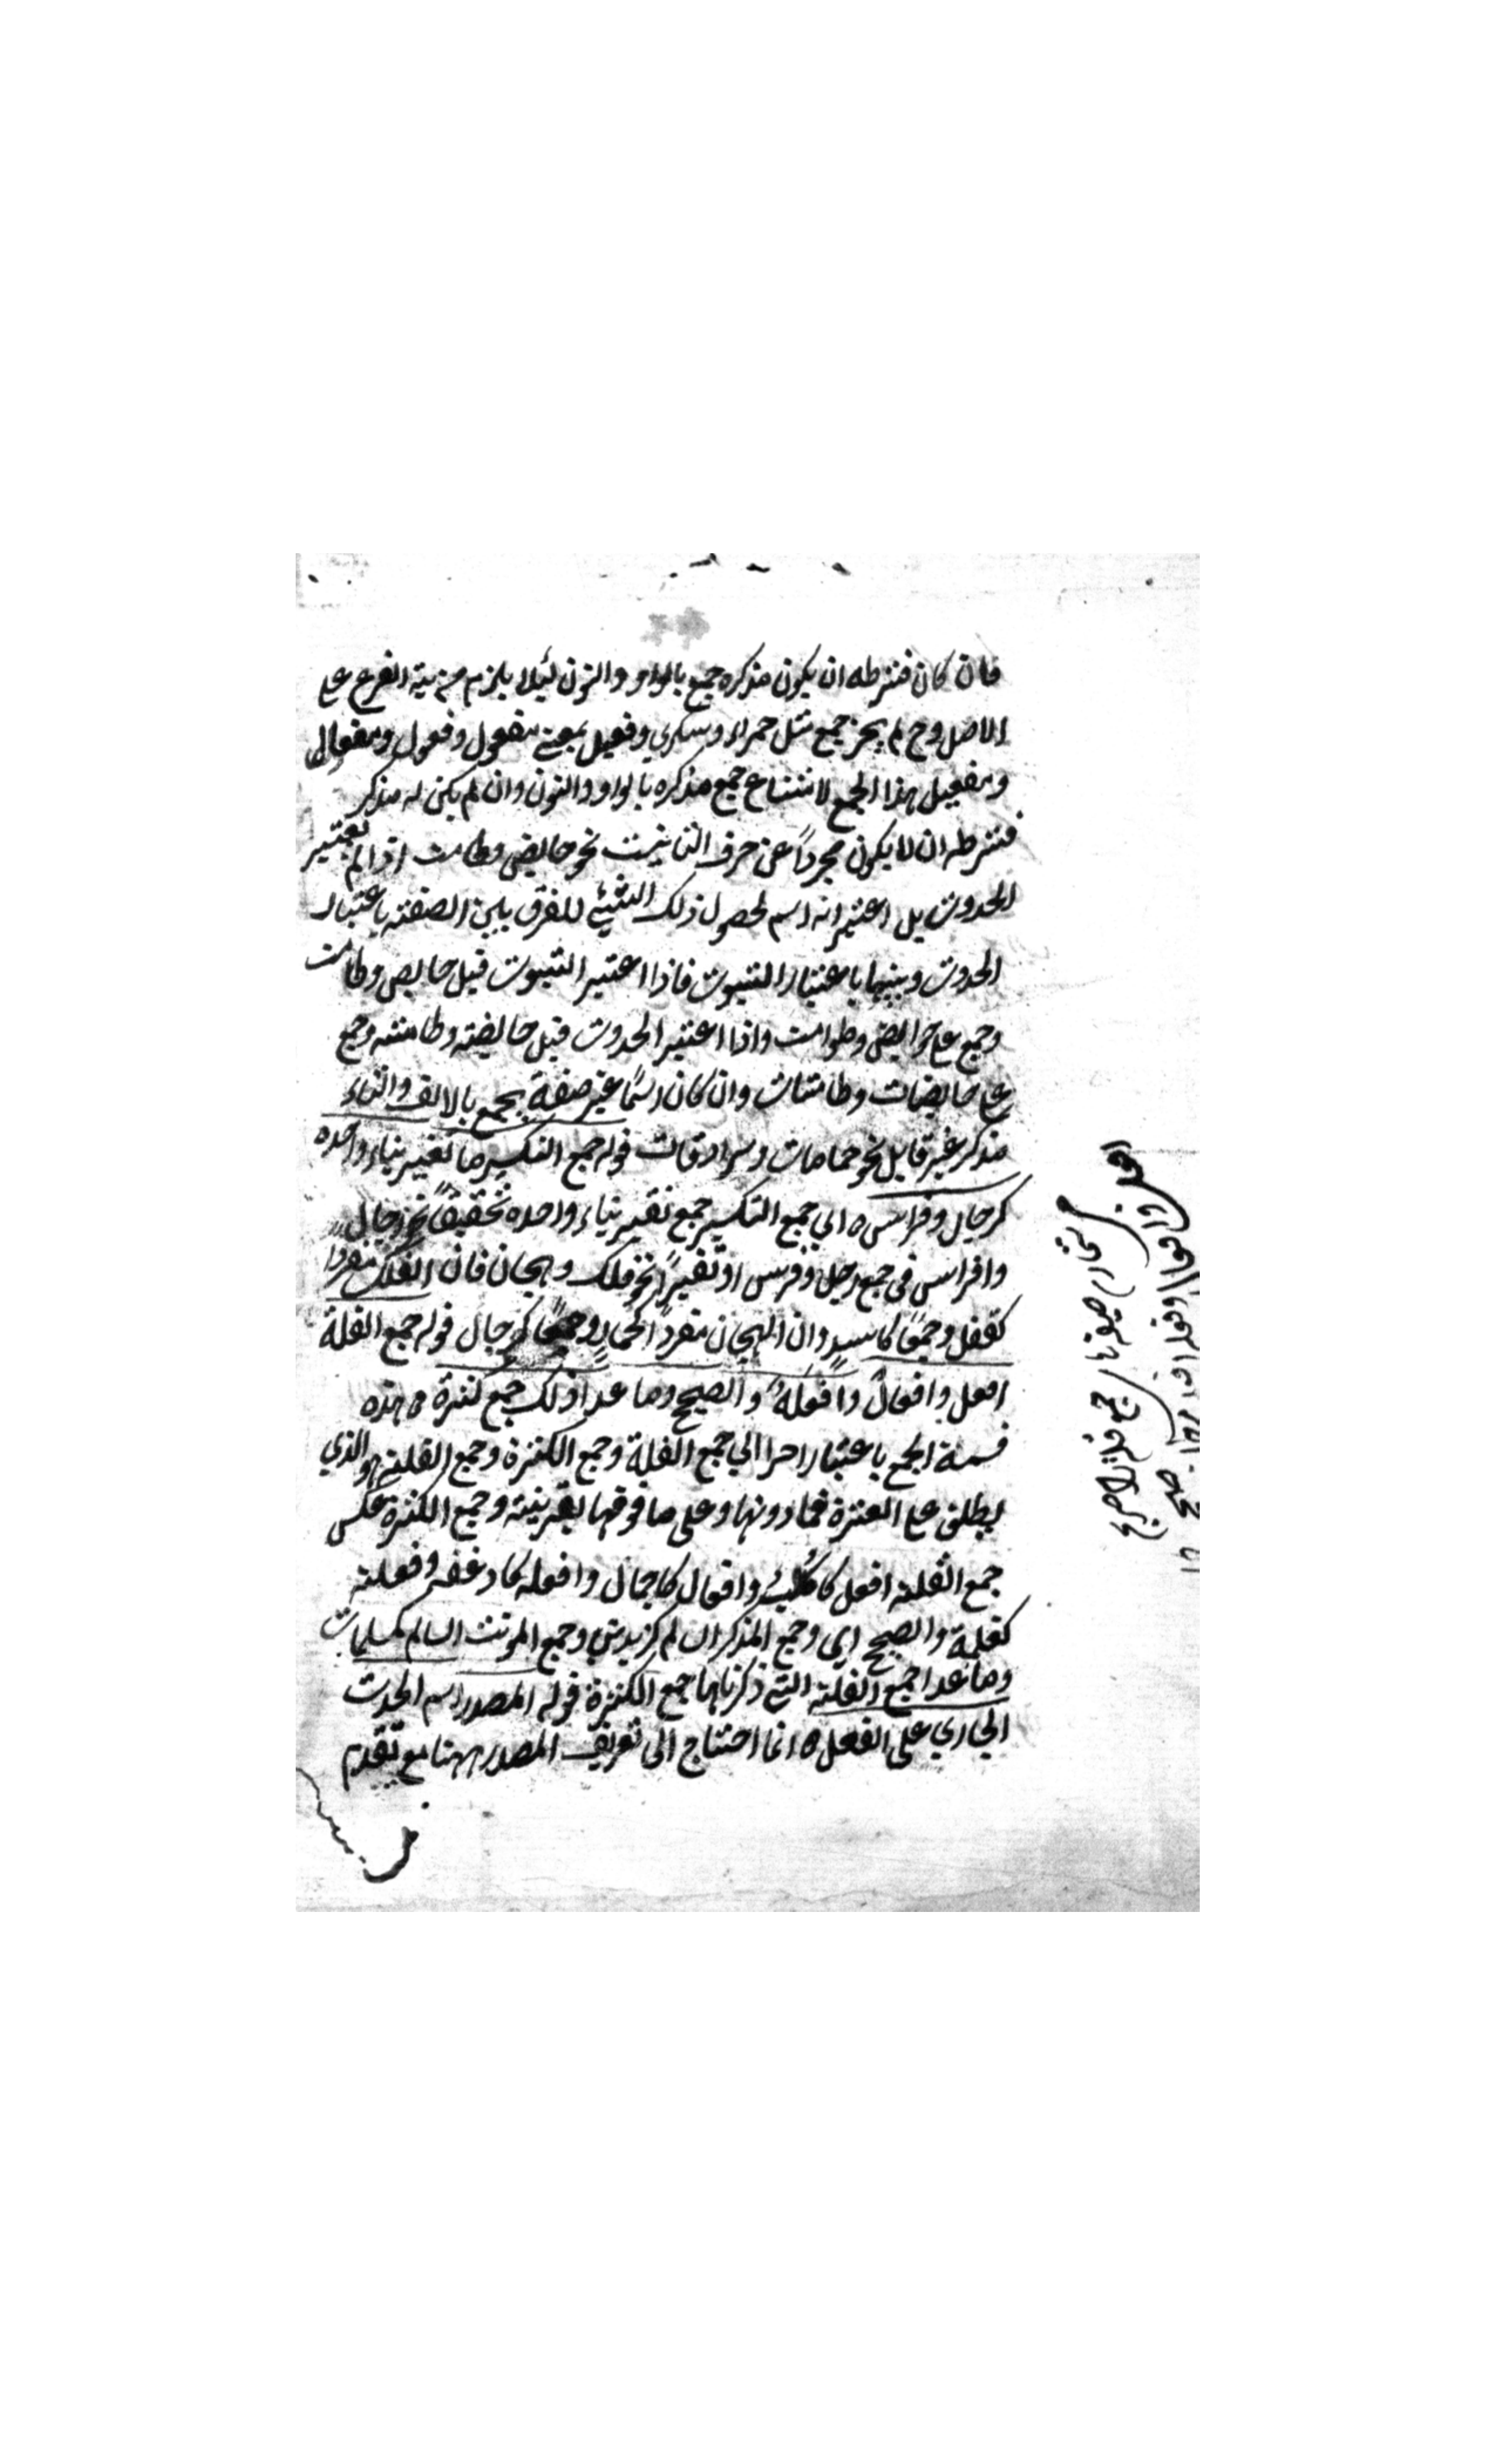 فان كان فشرطه ان يكون مذكره جمع بالواو والنون لئلا يلزم مزية الفرع على
الاصل وح لم يجز جمع مثل حمراء وسكري وفعيل بمعنى مفعول وفعول ومفعال
ومفعيل هذا الجمع لامتناع جمع مذكره بالواو والنون وان لم يكن له مذكر
فشرطه ان لا يكون مجرداً عن حرف التانيث نحو حايض وطامث اذا لم يعتبر
الحدوث بل اعتبر انه اسم لحصول ذلك الشيئ للفرق بين الصفته باعتبار
الحدوث وبينها باعتبار الثبوت فاذا اعتبر الثبوت قيل حايض وطامث
وجمع على حوايض وطوامث واذا اعتبر الحدوث قيل حايضته وطامثه وجمع
على حايضات وطامثات وان كان اسمًا غير صفة يجمع بالالف والتاء
مذكر غير قابل نحو حمامات وسرادقات قوله جمع التكسير ما تغير بناء واحده
كرجال وفراس ه اي جمع التكسير جمع تغير بناء واحده تحقيقًا نحو رجال
وافراس في جمع رجل وفرس او تقديرًا نحو فلك وهجان فان الفلك مفردا
كقفل وجمعًا كاسد وان الهجان مفردًا كحمار وجمعًا كرجال قوله جمع القلة
افعل وافعال وافعلة والصحيح وما عدا ذلك جمع كثرة ه هذه
قسمة الجمع باعتبار اخر الي جمع القلة وجمع الكثرة وجمع القلته هو الذي
يطلق على العشرة فما دونها وعلى ما فوقها بقرينته وجمع الكثرة عكس
جمع القلته افعل كاكلب وافعال كاجمال وافعله كارغفه وفعلته
كغلمة والصحيح اي وجمع المذكر السالم كزيدين وجمع المونث السالم كمسلمات
وما عدا جمع القلته التي ذكرناها جمع الكثرة قوله المصدر اسم الحدث
الجاري على الفعل ه انما احتاج الى تعريف المصدر ههنا مع تقدم